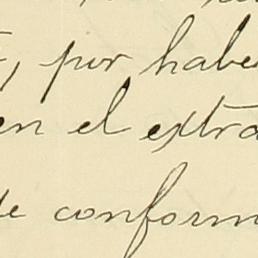 , por habe
en el extra
de conform